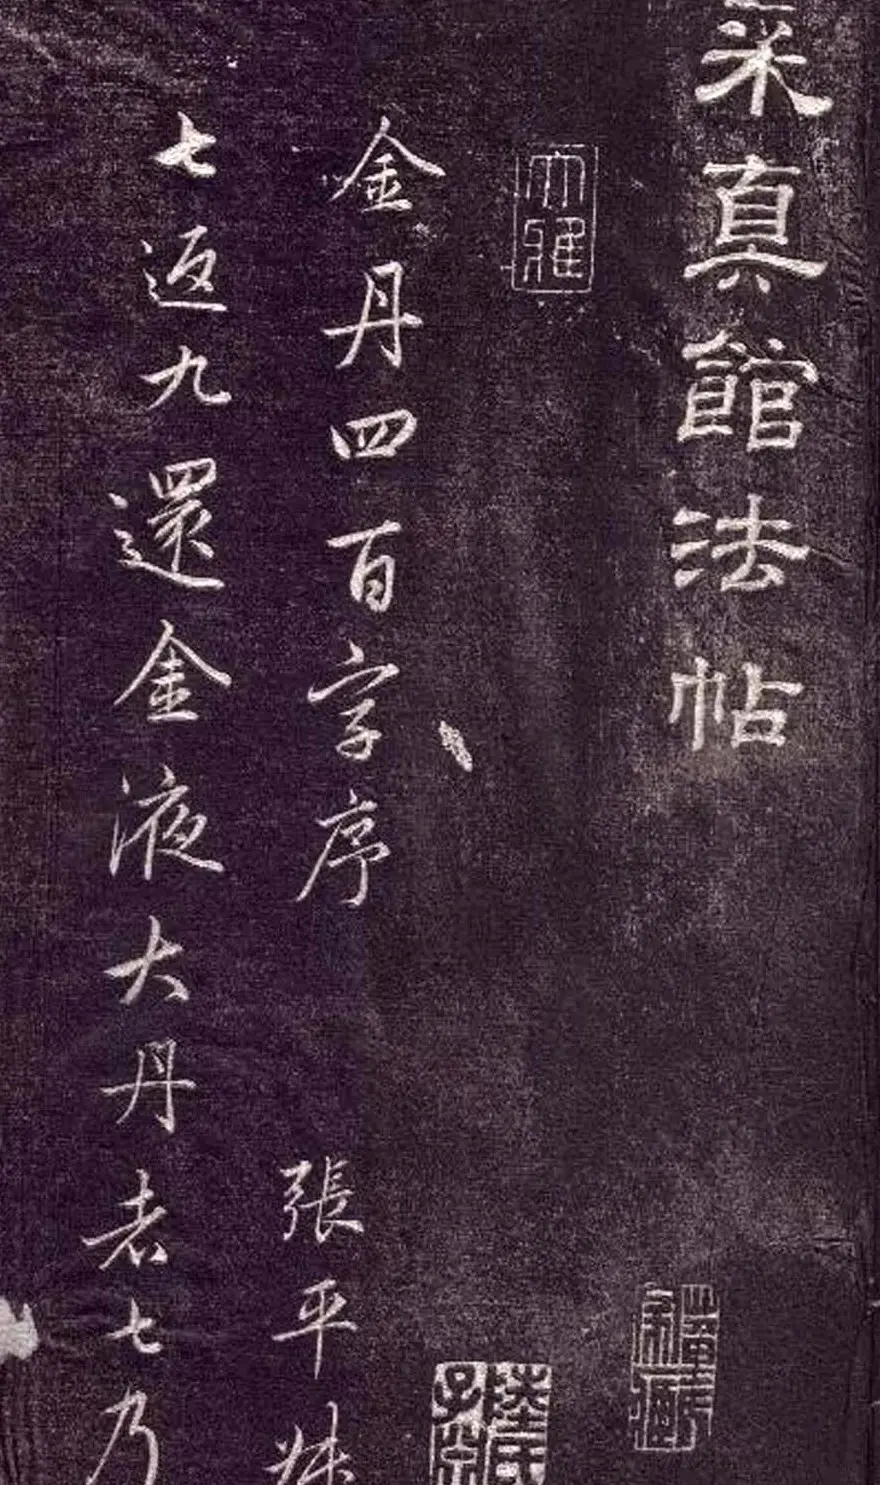 采真館法帖
大雅
金丹四百字序 張平叔
七返九還金液大丹者七乃